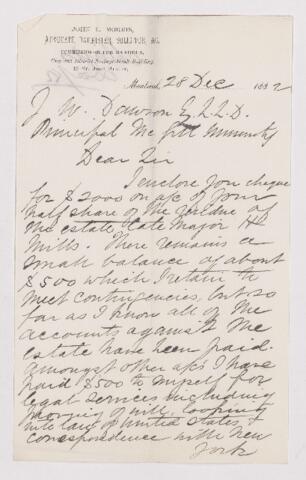 JOHN L. MORRIS,
ADVOCATE, BARRISTER, SOLICITOR, &C.
COMMISSIONER FOR MANITOBA,
City and District Savings Bank Building,
St. James Street,
Montreal, 28 Dec 1882
J. W. Dawson Esq LLD.
Principal McGill University
Dear Sir
I enclose you cheque
for $2000 on a/c of your
half share of the residue of
the estate late Major H
Mills. There remains a
small balance of about
$500 which I retain to
meet contingencies, but so
far as I know all of the
accounts against the
estate have been paid.
amongst other a/cs I have
paid $500 to myself for
legal services including
of will, looping
into law of United States, &
correspondence with New
York